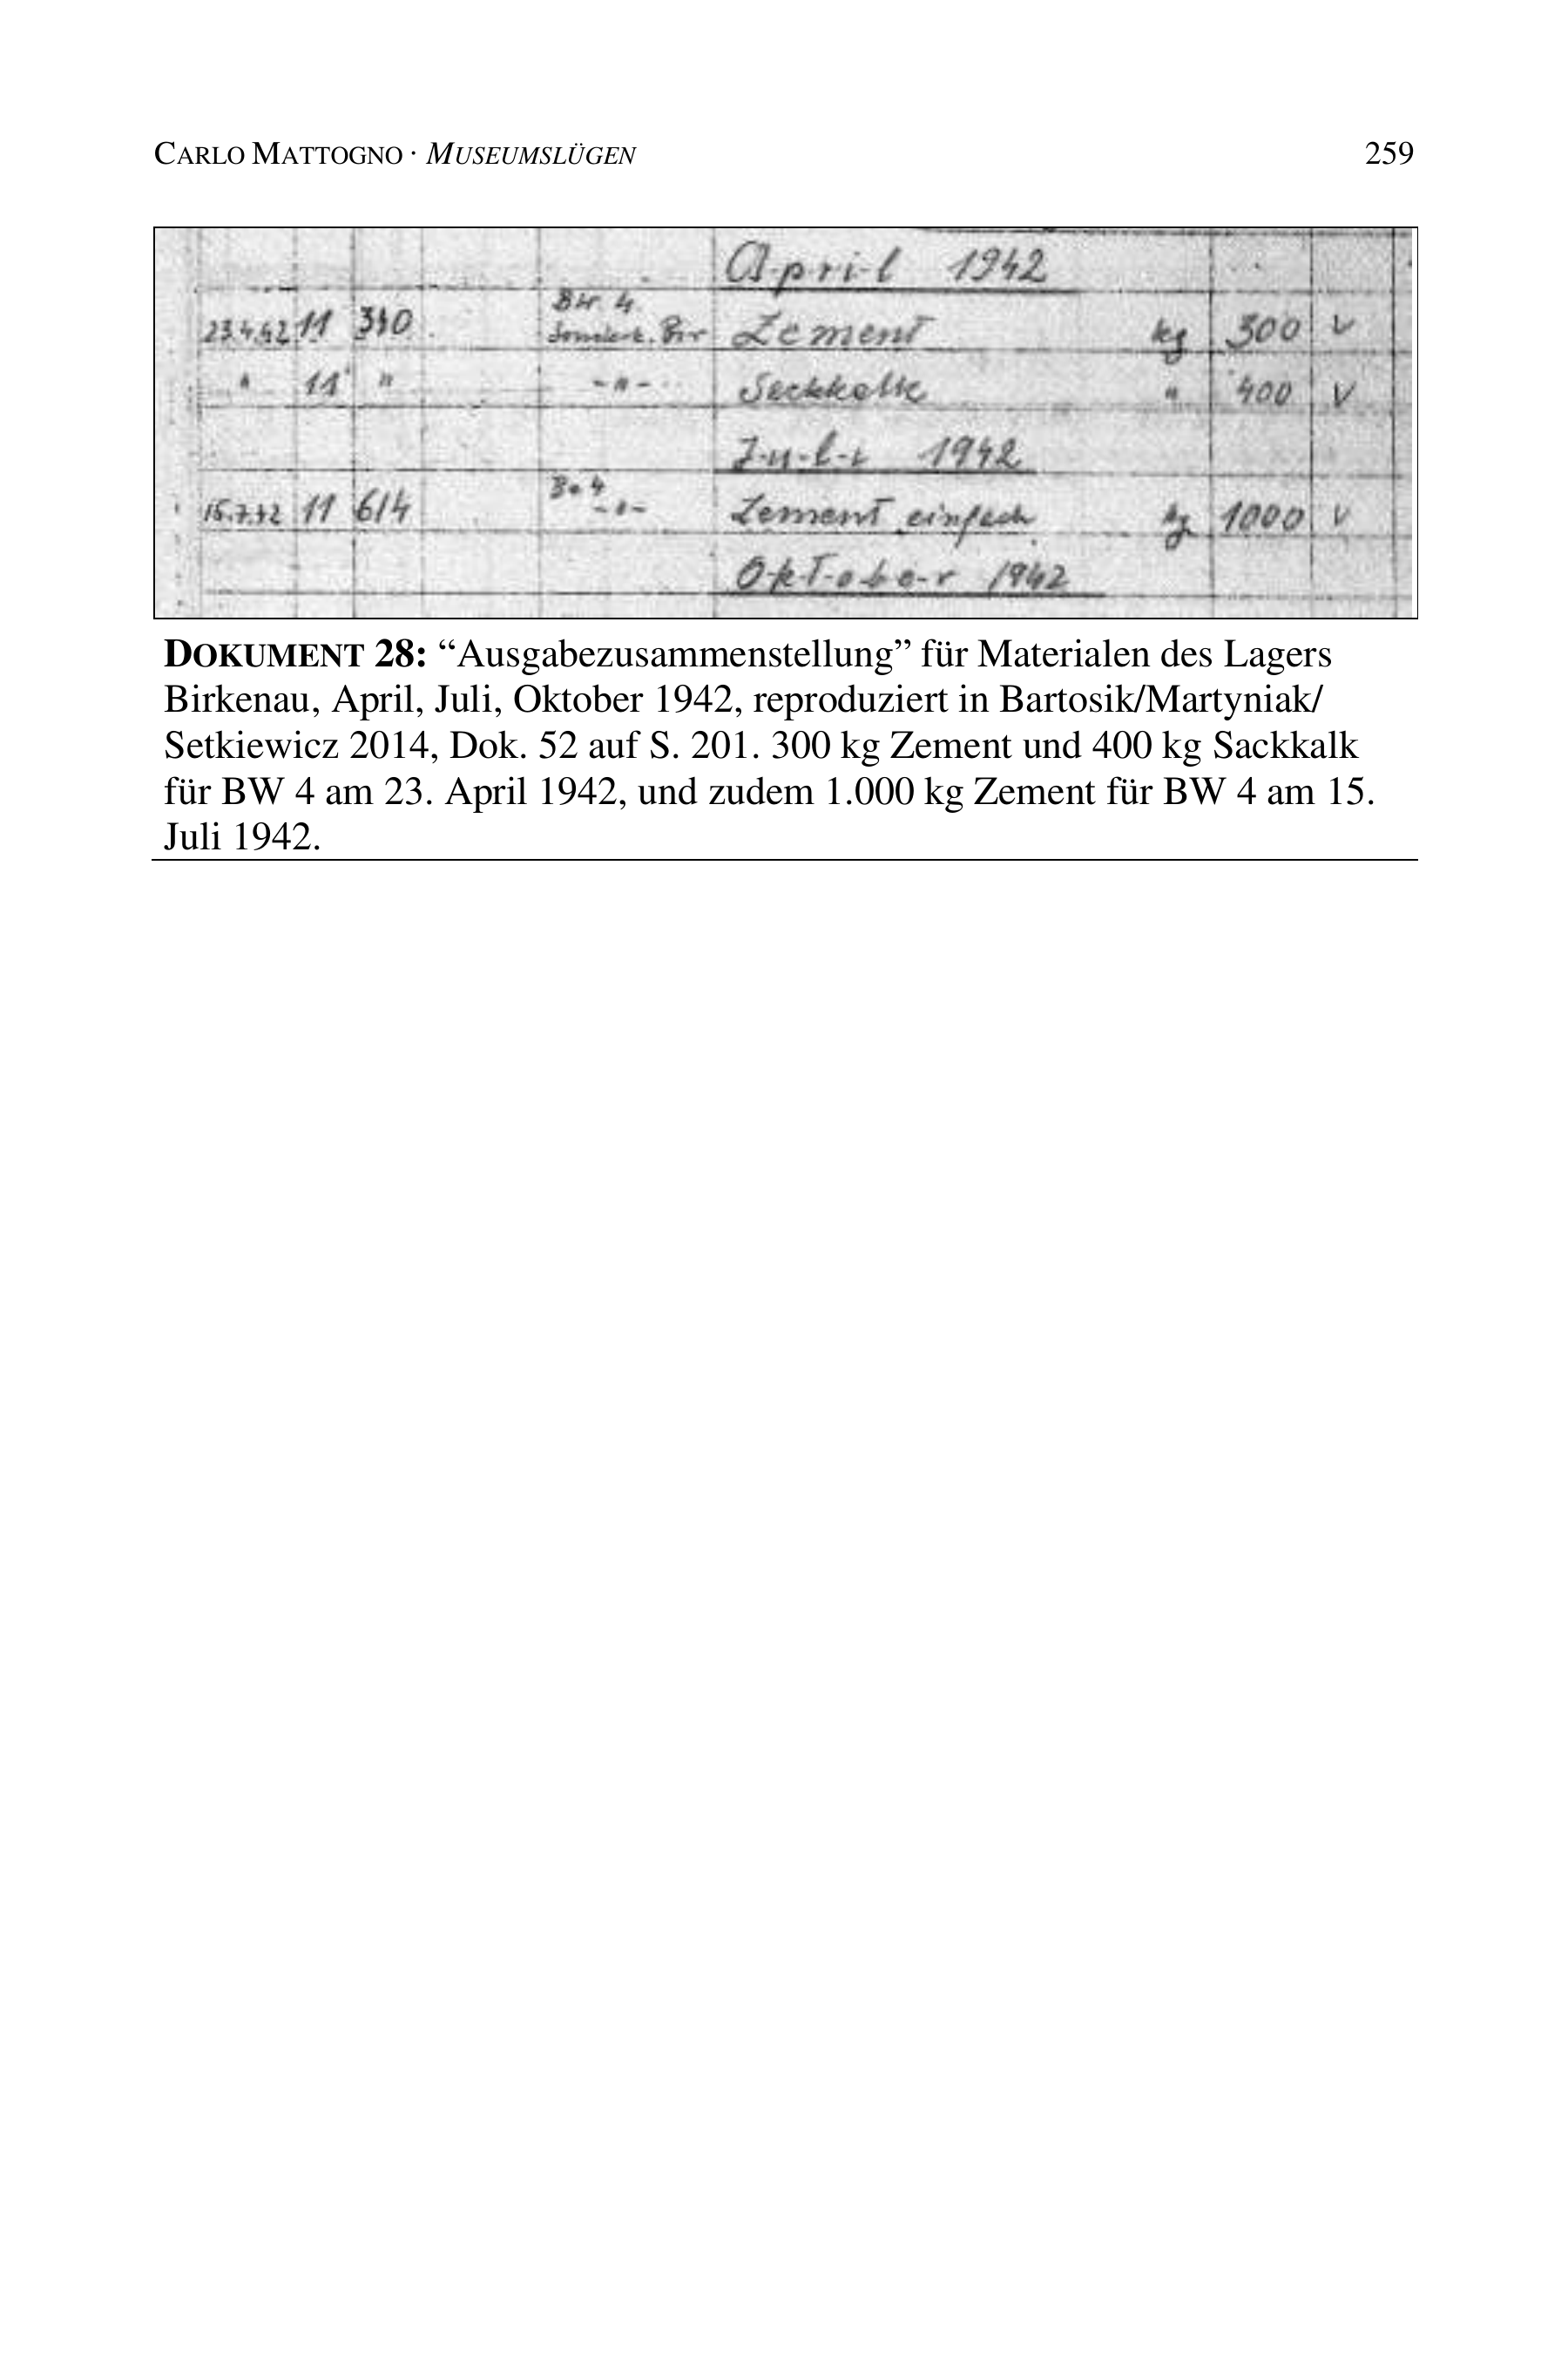 CARLO MATTOGNO · MUSEUMSLÜGEN 259
April 1942
BW 4
23.4.42 11 340 Zement kg 300 v
" 11 " -"- Sackkalk " 400 v
Juli 1942
15.7.42 11 614 -"- Zement einfach kg 1000 v
Oktober 1942
DOKUMENT 28: “Ausgabezusammenstellung” für Materialen des Lagers
Birkenau, April, Juli, Oktober 1942, reproduziert in Bartosik/Martyniak/
Setkiewicz 2014, Dok. 52 auf S. 201. 300 kg Zement und 400 kg Sackkalk
für BW 4 am 23. April 1942, und zudem 1.000 kg Zement für BW 4 am 15.
Juli 1942.